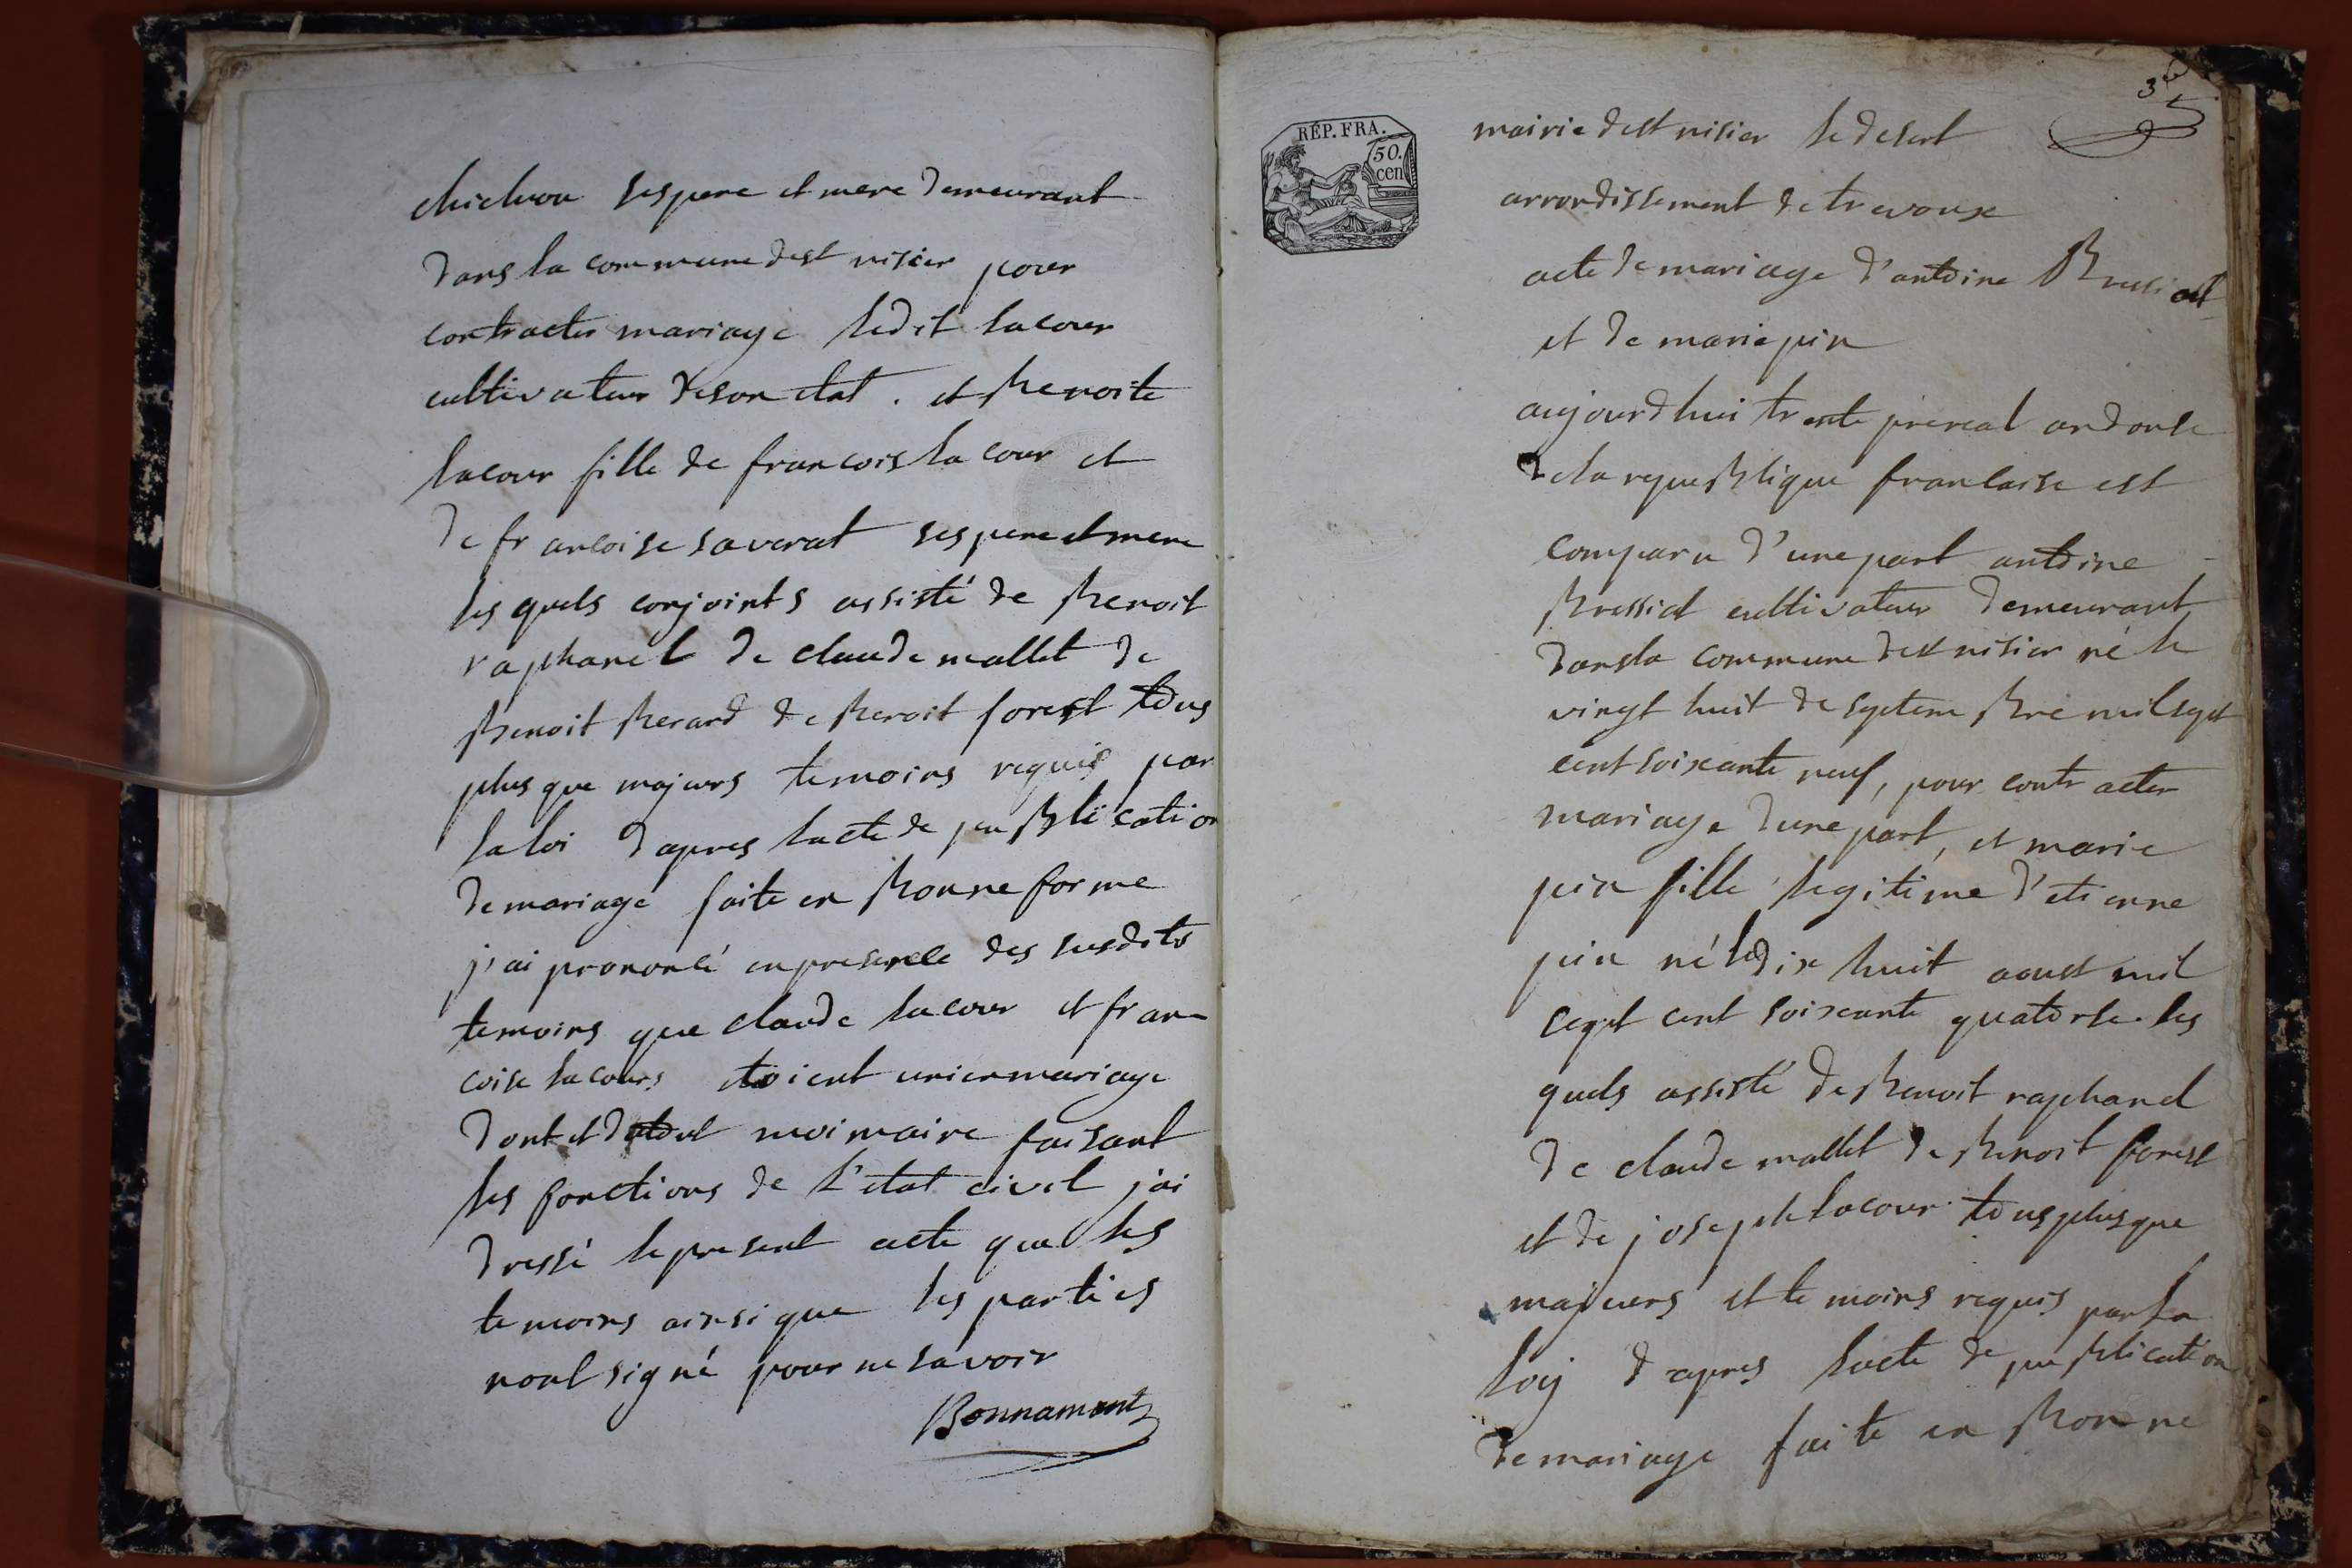 chichoux ses pere et mere demeurant
dans la commune de st nisier pour
contracter mariage ledit lacour
cultivateur de son etat. et Benoite
lacour fille de francois la cour et
de francoise saverat ses pere et mere
les quels conjoints assisté de Benoit
raphanel de claude mallet de
Benoit Berard de Benoit forest tous
plus que majeurs temoins requis par
la loi d'apres lacte de publication
de mariage faite en Bonne forme
j'ai prononcé en presence des susdits
temoins que claude lacour et fran
coise lacour etoient unis en mariage
dont et du tout moi maire faisant
les fonctions de l'etat civil j'ai
dressé le present acte que les
temoins ainsi que les parties
nont signé pour ne savoir
Bonnamant
3e
RÉP. FRA.
50.
cen
mairie de st nisier le desert
arrondissement de trevoux
acte de mariage d'antoine
et de marie pin
aujourdhui trente prereal an douse
de la republique francaise est
comparu d'une part antoine
Bressiet cultivateur demeurant
dans la commune de st nisier né le
vingt huit de septemBre mil sept
cent soixante neuf, pour contracter
mariage dune part, et marie
pin fille legitime d'etienne
pin né le dix huit aoust mil
cept cent soixante quatorse. les
quels assisté de Benoit raphanel
de claude mallet de Benoit forest
et de joseph lacour tous plus que
majeurs et temoins requis par la
loy d'apres lacte de publication
de mariage faite en Bonne